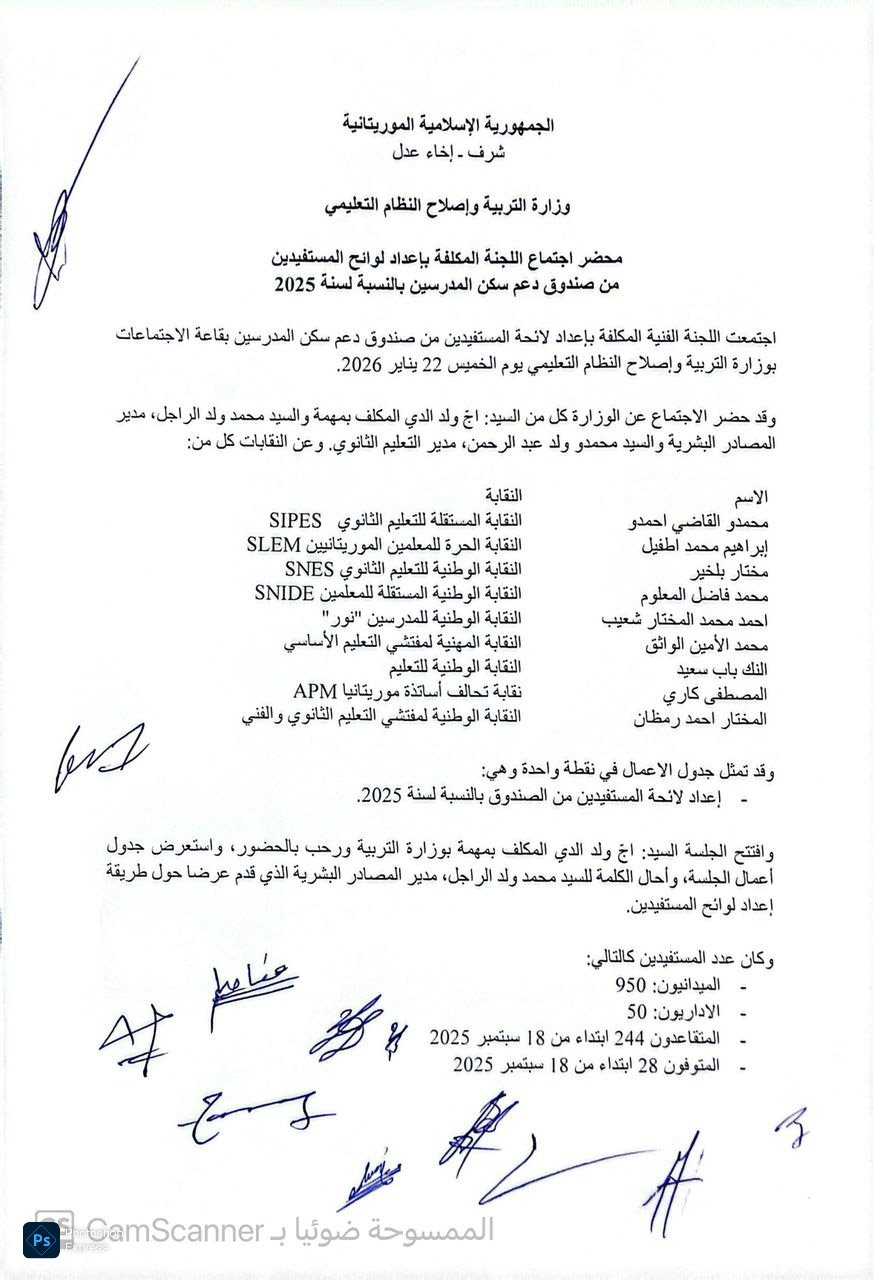 الجمهورية الإسلامية الموريتانية
شرف - إخاء عدل
وزارة التربية وإصلاح النظام التعليمي
محضر اجتماع اللجنة المكلفة بإعداد لوائح المستفيدين
من صندوق دعم سكن المدرسين بالنسبة لسنة 2025
اجتمعت اللجنة الفنية المكلفة بإعداد لائحة المستفيدين من صندوق دعم سكن المدرسين بقاعة الاجتماعات
بوزارة التربية وإصلاح النظام التعليمي يوم الخميس 22 يناير 2026.
وقد حضر الاجتماع عن الوزارة كل من السيد: اجّ ولد الدي المكلف بمهمة والسيد محمد ولد الراجل، مدير
المصادر البشرية والسيد محمدو ولد عبد الرحمن، مدير التعليم الثانوي. وعن النقابات كل من:
الاسم النقابة
محمدو القاضي احمدو النقابة المستقلة للتعليم الثانوي SIPES
إبراهيم محمد اطفيل النقابة الحرة للمعلمين الموريتانيين SLEM
مختار بلخير النقابة الوطنية للتعليم الثانوي SNES
محمد فاضل المعلوم النقابة الوطنية المستقلة للمعلمين SNIDE
احمد محمد المختار شعيب النقابة الوطنية للمدرسين "نور"
محمد الأمين الواثق النقابة المهنية لمفتشي التعليم الأساسي
النك باب سعيد النقابة الوطنية للتعليم
المصطفى كاري نقابة تحالف أساتذة موريتانيا APM
المختار احمد رمظان النقابة الوطنية لمفتشي التعليم الثانوي والفني
وقد تمثل جدول الاعمال في نقطة واحدة وهي:
- إعداد لائحة المستفيدين من الصندوق بالنسبة لسنة 2025.
وافتتح الجلسة السيد: اجّ ولد الدي المكلف بمهمة بوزارة التربية ورحب بالحضور، واستعرض جدول
أعمال الجلسة، وأحال الكلمة للسيد محمد ولد الراجل، مدير المصادر البشرية الذي قدم عرضا حول طريقة
إعداد لوائح المستفيدين.
وكان عدد المستفيدين كالتالي:
- الميدانيون: 950
- الاداريون: 50
- المتقاعدون 244 ابتداء من 18 سبتمبر 2025
- المتوفون 28 ابتداء من 18 سبتمبر 2025
CS الممسوحة ضوئيا بـ CamScanner
Ps Photoshop
Express